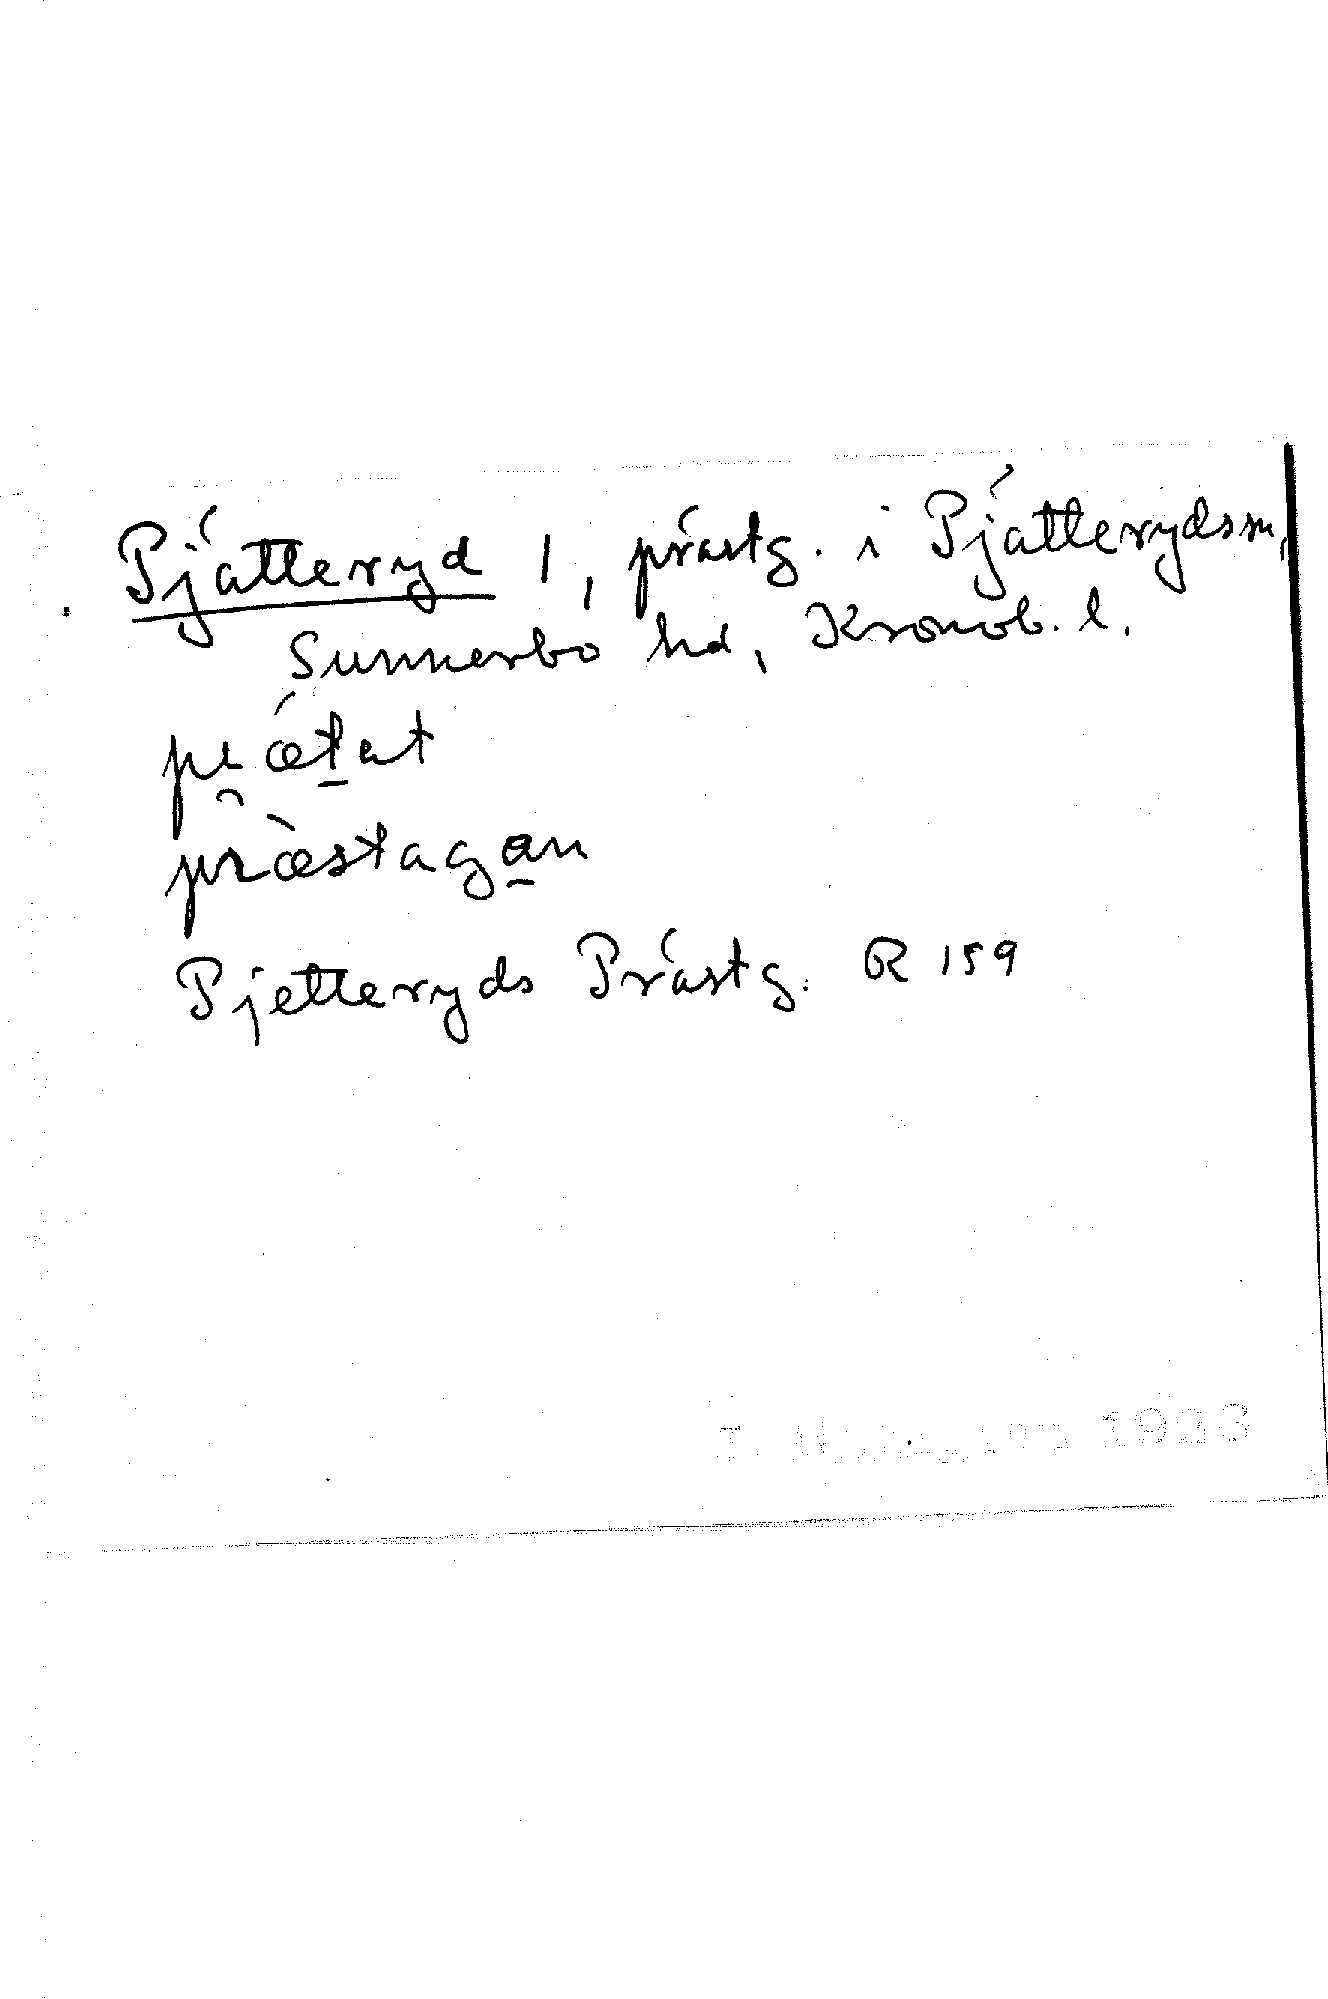 Pjätteryd 1, prästg. i Pjätterydssn,
Sunnerbo hd, Kronob. l.
pi̯ǽt̠at
præ̀staga̠n
Pjetteryds Prästg. R 159
1923